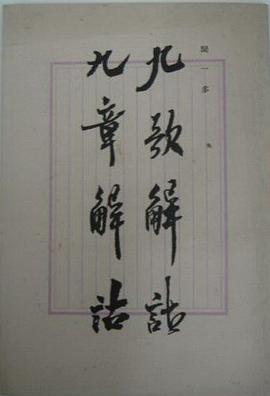 聞一多
九歌解詁
九章解詁